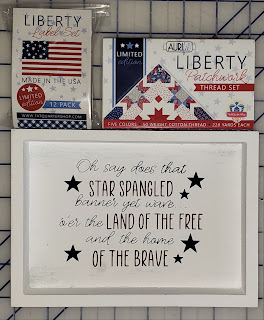 LIBERTY
Label Set
MADE IN THE USA
LIMITED
edition
12 PACK
WWW.FATQUARTERSHOP.COM
LIMITED
edition
AURIFIL
LIBERTY
Patchwork
THREAD SET
FIVE COLORS 50 WEIGHT COTTON THREAD 220 YARDS EACH
Oh say does that
STAR SPANGLED
banner yet wave
o'er the LAND OF THE FREE
and the home
OF THE BRAVE